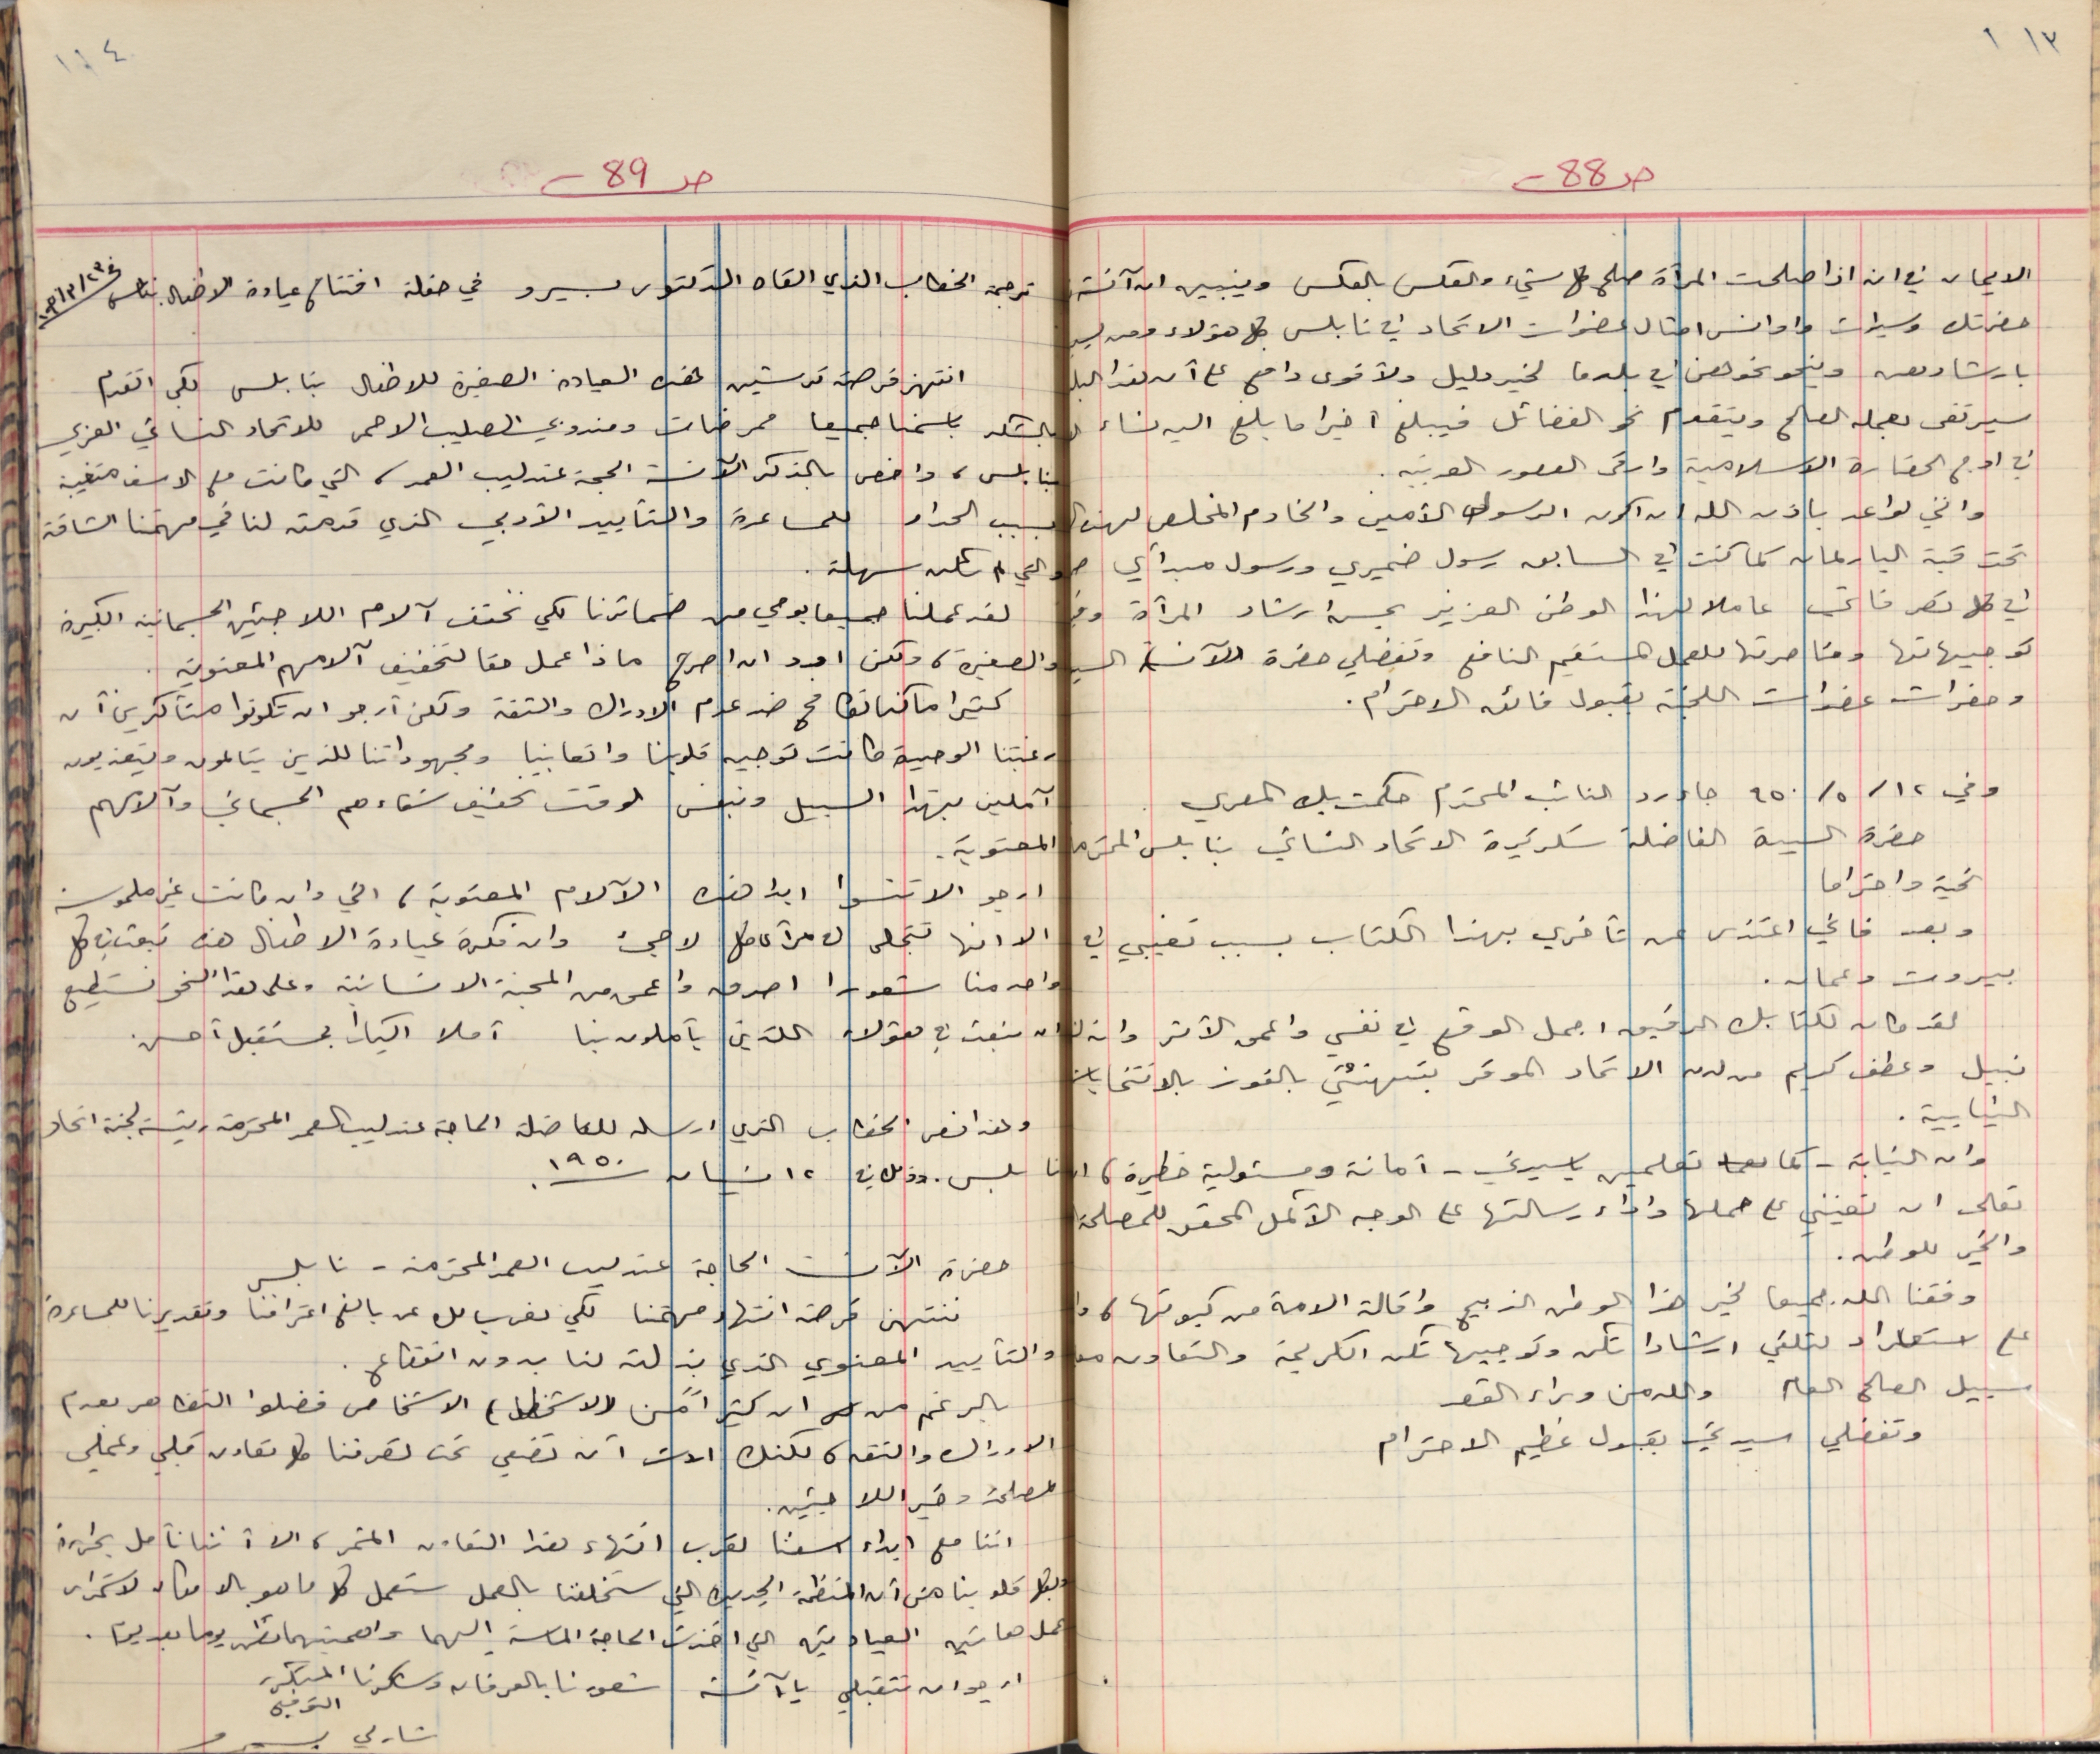 ١١٣
صـ 88 ـ
الايمان في ان اذا صلحت المرأة صلح كل شيء والعكس بالعكس وينبيه ان آنسة
حضرتك وسيدات واوانس امثال عضوات الاتحاد في نابلس كل هؤلاء ومن
بارشادهن وينحو نحوهن في بلدها لخير دليل ولأقوى دافع على أن هذا البلد
سيرتقى بعمله الصالح ويتقدم نحو الفضائل فيبلغ اخيرا ما بلغ اليه نساء
في اوج الحضارة الاسلامية وارقى العصور العربية .
وانني لواعد باذن الله ان اكون الرسول الأمين والخادم المخلص لهذه
تحت قبة البارلمان كما كنت في السابق رسول ضميري ورسول مبدأي
في كل تصرفاتي عاملا لهذا الوطن العزيز بحسن ارشاد المرأة
توجيهاتها ومناصرتها للعمل المستقيم النافع وتفضلي حضرة الآنسة السيدة
وحضرات عضوات اللجنة بقبول فائق الاحترام .
وفي ١٢ / ٥ / ٩٥٠ جاء رد النائب المحترم حكمت بك المصري
حضرة السيدة الفاضلة سكرتيرة الاتحاد النسائي بنابلس المحترمة
تحية واحتراما
وبعد فاني اعتذر عن تأخري بهذا الكتاب بسبب تغيبي في
بيروت وعمان .
لقد كان لكتابك الرقيق اجمل الوقع في نفسي واعمق الأثر
نبيل وعطف كريم من لدن الاتحاد الموقر بتهنئتي بالفوز بالانتخابات
النيابية .
وان النيابة - كما تعلمين ياسيدتي - أمانة ومسئولية خطيرة ،
تعالى ان تعينني على حملها واداء رسالتها على الوجه الأكمل المحقق للمصلحة
والخير للوطن .
وفقنا الله جميعا لخير هذا الوطن الذبيح واقالة الامة من كبوتها ،
على استعداد لتلقي ارشاداتكن وتوجيهاتكن الكريمة والتعاون
سبيل الصالح العام والله من وراء القصد
وتفضلي سيدتي بقبول عظيم الاحترام
١١٤
صـ 89 ـ
ترجمة الخطاب الذي القاه الدكتور بيرو في حفلة افتتاح عيادة الاطفال بنابلس
انتهز فرصة تدشين هذه العيادة الصغيرة للاطفال بنابلس لكي اتقدم
بالشكر باسمنا جميعا ممرضات ومندوبي الصليب الاحمر للاتحاد النسائي العربي
بنابلس ، واخص بالذكر الآنسة الحجة عندليب العمد ، التي كانت مع الاسف متغيبة
بسبب الحداد للمساعدة والتأييد الأدبي الذي قدمته لنا في مهمتنا الشاقة
والتي لم تكن سهلة .
لقد عملنا جميعا بوحي من ضمائرنا لكي نخفف آلام اللاجئين الجسمانية الكبيرة
والصغيرة ، ولكن اود ان اصرح ماذا عمل حقا لتخفيف آلامهم المعنوية .
كثيرا ما كنا نكافح ضد عدم الادراك والثقة ولكن أرجو ان تكونوا متأكدين أن
رغبتنا الوحيدة كانت توجيه قلوبنا واتعابنا ومجهوداتنا للذين يتألمون ويتعذبون
آملين بهذا السبيل وبنفس الوقت تخفيف شقاءهم الجسماني وآلامهم
المعنوية .
ارجو الا تنسوا ابدا هذه الآلام المعنوية ، التي وان كانت غير ملموسة
الا انها تتجلى لاجئ وان فكرة عيادة الاطفال هذه تبعث في كل
واحد منا شعورا اصدق واعمق من المحبة الانسانية وعلى هذا النحو نستطيع
ان نبعث في هؤلاء اللذين يأملون بنا أملا اكيدا بمستقبل أحسن .
وهذا نص الخطاب الذي ارسله للفاضلة الحاجة عندليب العمد المحترمة رئيسة لجنة اتحاد
نابلس . وذلك في ١٢ نيسان ١٩٥٠
حضرة الآنسة الحاجة عندليب العمد المحترمة - نابلس
ننتهز فرصة انتهاء مهمتنا لكي نعرب لك عن بالغ اعترافنا وتقديرنا للمساعدة
والتأييد المعنوي الذي بذلته لنا بدون انقطاع .
بالرغم من ان كثيرا من الاشخاص فضلوا التظاهر بعدم
الادراك والثقة ، لكنك اردت أن تضعي تحت تصرفنا كل تعاون قلبي وعملي
لمصلحة وخير اللاجئين .
اننا مع ابداء اسفنا لقرب انتهاء هذا التعاون المثمر ، الا أننا نأمل بحرارة
وبكل قلوبنا من أن المنظمة الجديدة التي ستخلفنا بالعمل ستعمل كل ما هو بالامكان لاستمرار
عمل هاتين العيادتين التي اخذت الحاجة الماسة اليهما واهميتهما تظهر يوما بعد يوم .
ارجو ان تتقبلي يا آنسة شعورنا بالعرفان وشكرنا
التوقيع
شارلي بيرو